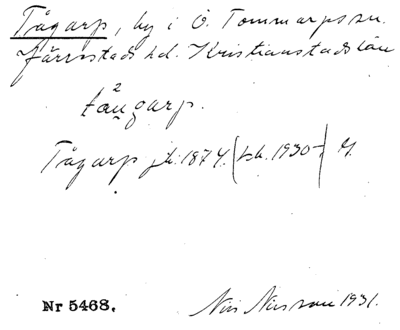 Tågarp, by i Ö. Tommarps sn.
Järrestads hd. Kristianstads län
2
taugarp.
Tågarp jb. 1874. (bh. 1930-) M.
Nr 5468. Nils Nilsson 1931.